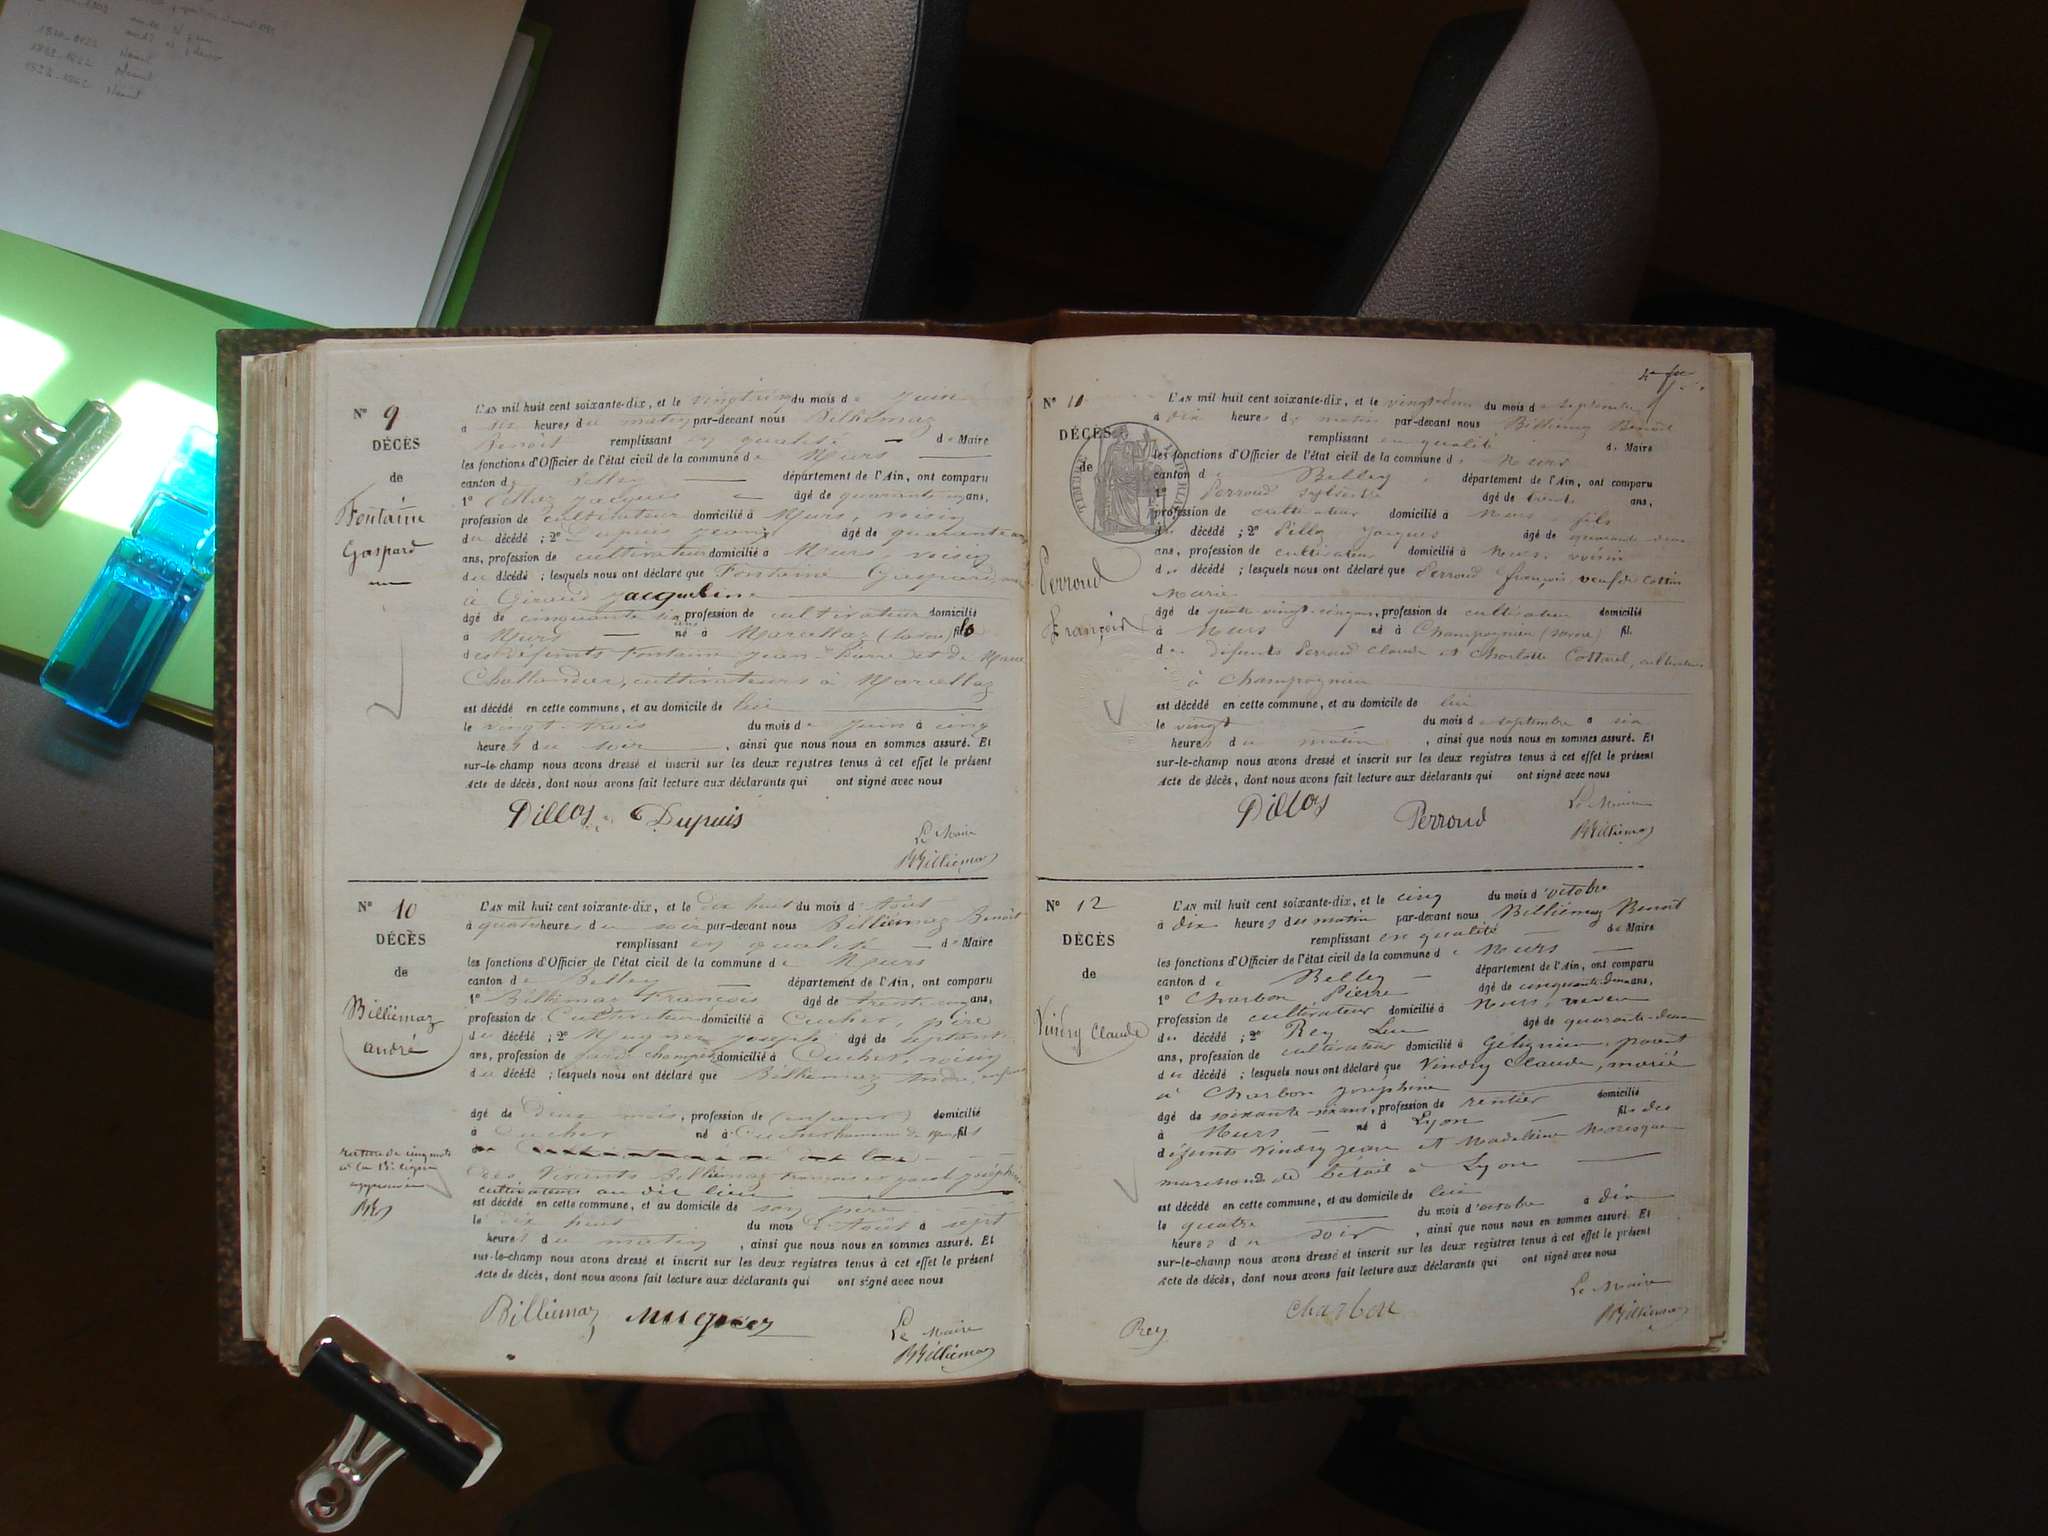 Nº 9
DÉCÈS
de
Fontaine
Gaspard
L'AN mil huit cent soixante-dix, et le du mois de Juin
à six heures du matin par-devant nous Billiémaz
Benoît remplissant en qualité de Maire
les fonctions d'Officier de l'état civil de la commune de Murs
canton de Belley département de l'Ain, ont comparu
1º Jacques âgé de ans,
profession de cultivateur domicilié à Murs, voisin
du décédé ; 2º Dupuis âgé de quarante
ans, profession de cultivateur domicilié à Murs, voisin
du décédé ; lesquels nous ont déclaré que Fontaine Gaspard
à Giraud Jacqueline
âgé de cinquante six ans, profession de cultivateur domicilié
à Murs né à Marcellaz (Savoie) fils
des défunts Fontaine Jean Pierre et de Marie
Challandier, cultivateurs à Marcellaz
est décédé en cette commune, et au domicile de lui
le vingt-trois du mois de Juin à cinq
heures du soir , ainsi que nous nous en sommes assuré. Et
sur-le-champ nous avons dressé et inscrit sur les deux registres tenus à cet effet le présent
Acte de décès, dont nous avons fait lecture aux déclarants qui ont signé avec nous
Pilloz Dupuis
Le Maire
Billiémaz
Nº 10
DÉCÈS
de
Billiémaz
andré
L'AN mil huit cent soixante-dix, et le dix huit du mois d'Août
à quatre heures du soir par-devant nous Billiémaz Benoît
remplissant en qualité de Maire
les fonctions d'Officier de l'état civil de la commune de Murs
canton de Belley département de l'Ain, ont comparu
1º Billiémaz François âgé de trente cinq ans,
profession de Cultivateur domicilié à Cucher, père
du décédé ; 2º Mugnier Joseph âgé de septante
ans, profession de garde champêtre domicilié à Cucher, voisin
du décédé ; lesquels nous ont déclaré que Billiémaz André, enfant
âgé de deux mois, profession de (enfant) domicilié
à Cucher né à Cucher hameau de Murs fils
des Vivants Billiémaz François et Joséphine
cultivateurs au dit lieu
est décédé en cette commune, et au domicile de son père
le dix huit du mois d'Août à sept
heures du matin , ainsi que nous nous en sommes assuré. Et
sur-le-champ nous avons dressé et inscrit sur les deux registres tenus à cet effet le présent
Acte de décès, dont nous avons fait lecture aux déclarants qui ont signé avec nous
Billiémaz Mugnier
Le Maire
Billiémaz
Nº 11
DÉCÈS
de
Perroud
François
L'AN mil huit cent soixante-dix, et le du mois de septembre
à dix heures du matin par-devant nous Billiémaz Benoît
remplissant en qualité de Maire
les fonctions d'Officier de l'état civil de la commune de Murs
canton de Belley département de l'Ain, ont comparu
1º Perroud Sylvestre âgé de trente ans,
profession de cultivateur domicilié à Murs, fils
du décédé ; 2º Pilloz Jacques âgé de quarante deux
ans, profession de cultivateur domicilié à Murs, voisin
du décédé ; lesquels nous ont déclaré que Perroud françois, veuf de Cottin
Marie
âgé de quatre vingt-cinq ans, profession de cultivateur domicilié
à Murs né à Champagnieu (Savoie) fils
des défunts Perroud Claude et Charlotte Cottarel, cultivateurs
à Champagnieu
est décédé en cette commune, et au domicile de lui
le vingt du mois de septembre à six
heures du matin , ainsi que nous nous en sommes assuré. Et
sur-le-champ nous avons dressé et inscrit sur les deux registres tenus à cet effet le présent
Acte de décès, dont nous avons fait lecture aux déclarants qui ont signé avec nous
Pilloz Perroud
Le Maire
Billiémaz
Nº 12
DÉCÈS
de
Vindry Claude
L'AN mil huit cent soixante-dix, et le cinq du mois d'octobre
à dix heures du matin par-devant nous Billiémaz Benoît
remplissant en qualité de Maire
les fonctions d'Officier de l'état civil de la commune de Murs
canton de Belley département de l'Ain, ont comparu
1º Charbon Pierre âgé de cinquante-deux ans,
profession de cultivateur domicilié à Murs, neveu
du décédé ; 2º Rey Luc âgé de quarante-deux
ans, profession de cultivateur domicilié à Gelignieu, parent
du décédé ; lesquels nous ont déclaré que Vindry Claude, marié
à Charbon Joséphine
âgé de soixante-six ans, profession de rentier domicilié
à Murs né à Lyon fils des
défunts Vindry Jean et Madeleine
marchands de bétail à Lyon
est décédé en cette commune, et au domicile de lui
le quatre du mois d'octobre à dix
heures du soir , ainsi que nous nous en sommes assuré. Et
sur-le-champ nous avons dressé et inscrit sur les deux registres tenus à cet effet le présent
Acte de décès, dont nous avons fait lecture aux déclarants qui ont signé avec nous
Rey Charbon
Le Maire
Billiémaz